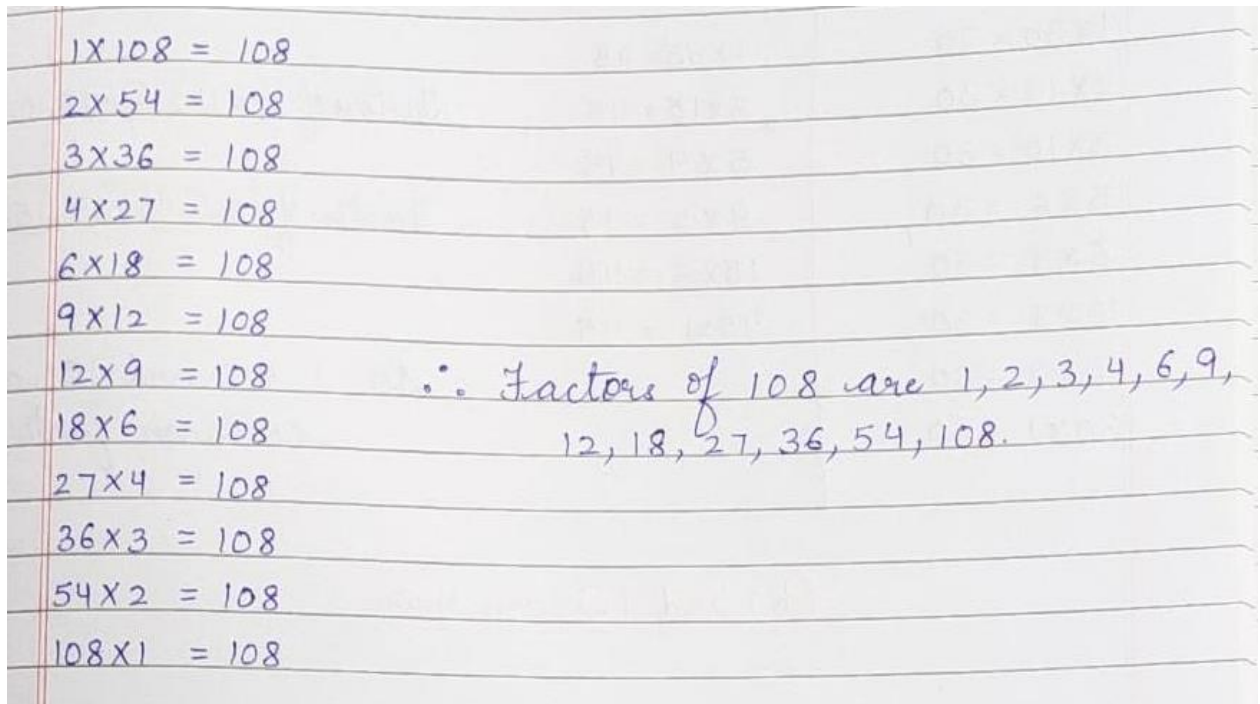 1X108 = 108
2X54 = 108
3X36 = 108
4X27 = 108
6X18 = 108
9X12 = 108
12X9 = 108
18X6 = 108
27X4 = 108
36X3 = 108
54X2 = 108
108X1 = 108
∴ Factors of 108 are 1, 2, 3, 4, 6, 9,
12, 18, 27, 36, 54, 108.